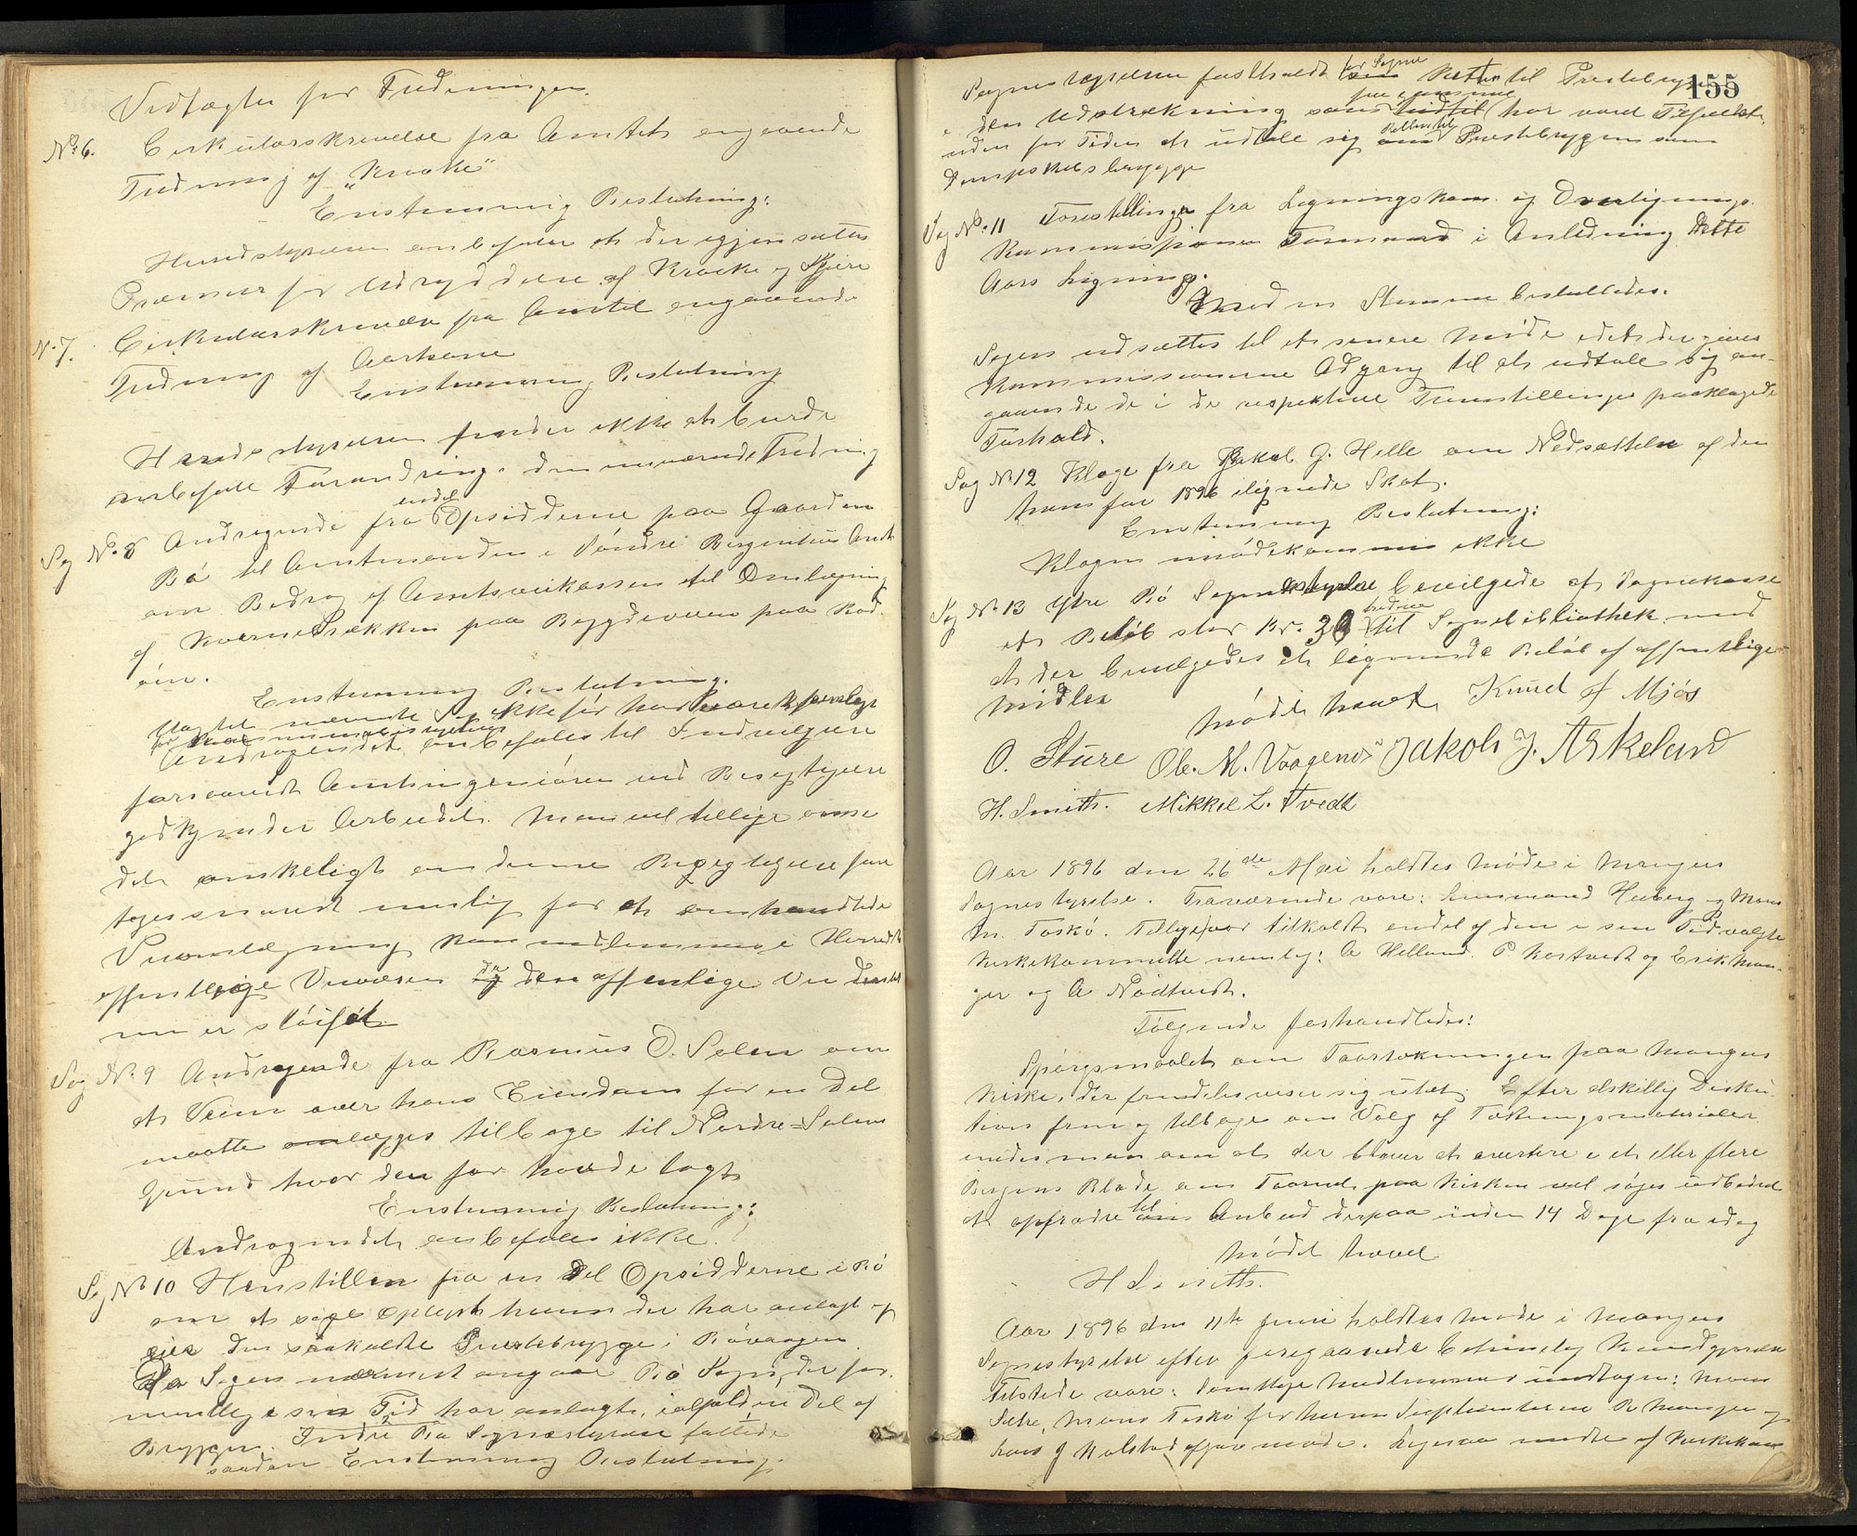 Vedtægter for Fredningen.
No. 6. Cirkulærskrivelse fra Amtet angaaende
Fredning af "Kraake"
Enstemmig Beslutning:
Herredstyrelsen anbefaler at der igjen sættes
Præmier for Udryddelse af Kraake og Skjere
No. 7. Cirkulærskrivelse fra Amtet angaaende
Fredning af Aarhane
Enstemmig Beslutning
Herredsstyrelsen finder ikke at burde
anbefale Forandring i den nuværende Fredning
Sag No. 8 Andragende fra endel Opsidderne paa Gaarden
Bø til Amtmanden i Søndre Bergenhus Amt
om Bidrag af Amtsveikassen til Omlægning
af Kvernebrækken paa Bygdeveien paa Rad-
øen.
Enstemmig Beslutning.
nævnte Sag ikke før har
Andragendet anbefales til Indvilgelse
forsaavidt Amtsingeniøren ved Besigtigelse
godkjender Arbeidet. Man vil tillige anse
det ønskeligt om denne Besigtigelse fore
toges snarest mulig for at omhandlede
Veiomlægning kan indlemmes i Herredets
offentlige Veivæsen da den offentlige Vei
nu er sløifet.
Sag No. 9 Andragende fra Rasmus O. Selen om
at Veien over hans Eiendom for en Del
maatte omlægges tilbage til Nordre-Selens
Grund hvor den før havde lagt
Enstemmig Beslutning:
Andragendet anbefales ikke.
Sag No 10 Henstillen fra en Del Opsidderne i Bø
om at søge oplyst hvem der har anlagt og
eier den saakaldte Prestebrygge i Bøvaagen
Da Sagen nærmest angaar Bø Sogn, der for-
mentlig i sin Tid har anlagt, ialfald en Del af
Bryggen. Indre Bø Sognestyrelse fattede
saadan Enstemmig Beslutning.
155
Sognestyrelsen fastholdt for Sogne Retten til Prestebryggen
i den Udstrækning som har været Tilfældet,
uden for Tiden at udtale sig Prestebryggen som
Dampskibsbrygge
Sag No. 11 Forestillinger fra Ligningskom. og Overlignings-
Kommissionens Formænd i Anledning Dette
Aars Ligning.
Med en Stemme besluttedes.
Sagen udsættes til et senere Møde idet der gives
Kommissionerne Adgang til at udtale sig an-
gaaende de i de respektive Fremstillinger paaklagede
Forhold.
Sag No 12 Klage fra Jakob G. Helle om Nedsættelse af den
ham for 1896 ilignede Skat.
Enstemmig Beslutning:
Klagen imødekommes ikke
Sag No 13 Ytre Bø Sognestyrelse bevilgede af Sognekasse
et Beløb stor Kr. 30 tredive til Sognebibliothek mod
at der bevilgedes et lignende Beløb af offentlige
Midler
Mødet hævet Knud A Mjøs
O. Sture Ole. M. Vaagenes Jakob J. Askeland
H. Smith. Mikkel L. Tvedt
Aar 1896 den 26de Mai holdtes Møde i Mangers
Sognestyrelse. Fraværende vare: Lensmand Heiberg og Mons
M. Toskø. Tillige var tilkaldt endel af den i sin Tid valgte
Kirkekommitte nemlig: A Helland. P Kartveit og Erik Man-
ger og A Nødtveit.
Følgende forhandledes:
Spørgsmaalet om Taarntækningen paa Mangers
Kirke, der fremdeles viser sig utæt. Efter atskillig Disku-
tion frem og tilbage om Valg af Tækningsmaterialer
enedes man om at der bliver at avertere i et eller flere
Bergens Blade om Taarnet paa Kirken vil søges udbedret
at opfordre til Anbud derpaa inden 14 Dage fra idag
Mødet hævet
H Smith.
Aar 1896 den 11te Juni holdtes Møde i Mangers
Sognestyrelse efter foregaaende behørig Kundgjørelse
Tilstede vare: samtlige Medlemmer undtagen: Mons
Sætre, Mons Toskø for hvem Suplianterne R Manger og
Lars J Halstad afgav Møde. Ligesaa mødte af Kirkekom